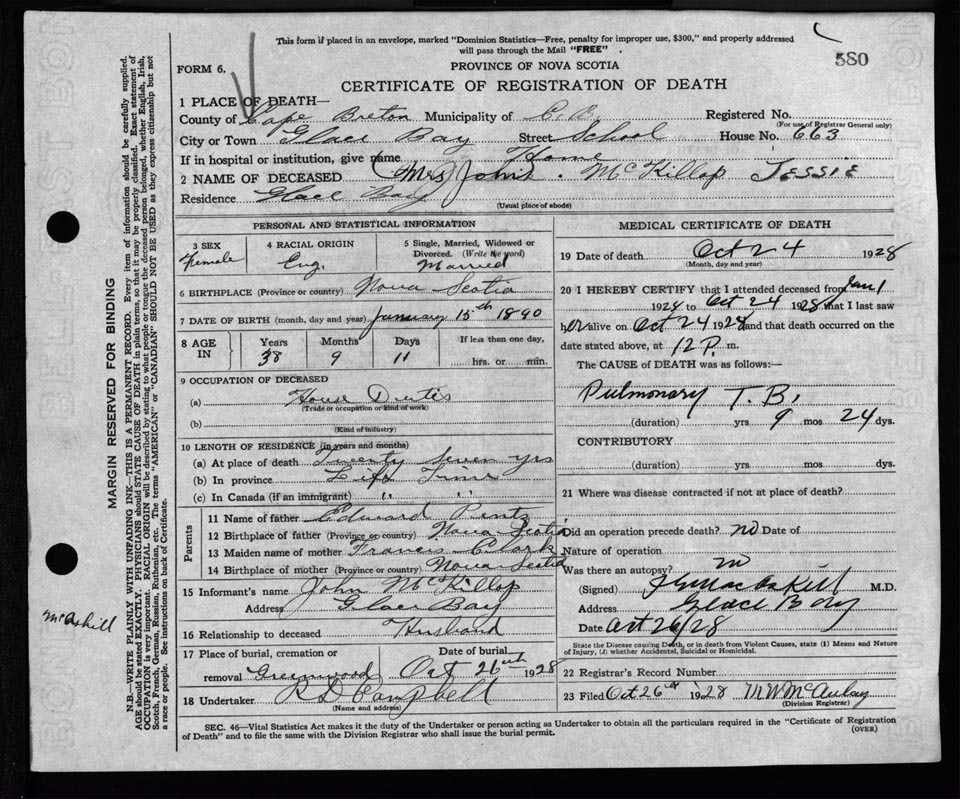 This form if placed in an envelope, marked "Dominion Statistics—Free, penalty for improper use, $300," and properly addressed
will pass through the Mail "FREE" .
580
FORM 6.
PROVINCE OF NOVA SCOTIA
CERTIFICATE OF REGISTRATION OF DEATH
1 PLACE OF DEATH—
County of Cape Breton Municipality of C. B. Registered No.
(For use of Registrar General only)
City or Town Glace Bay Street School House No. 663
If in hospital or institution, give name Home
2 NAME OF DECEASED (Mrs) John . McKillop JESSIE
Residence Glace Bay
(Usual place of abode)
PERSONAL AND STATISTICAL INFORMATION
3 SEX Female
4 RACIAL ORIGIN Eng.
5 Single, Married, Widowed or Divorced. (Write the word) Married
6 BIRTHPLACE (Province or country) Nova Scotia
7 DATE OF BIRTH (month, day and year) January 15th 1890
8 AGE IN Years Months Days If less than one day,
38 9 11 hrs. or min.
9 OCCUPATION OF DECEASED
(a) House Duties
(Trade or occupation or kind of work)
(b)
(Kind of industry)
10 LENGTH OF RESIDENCE (in years and months)
(a) At place of death Twenty Seven yrs
(b) In province Life Time
(c) In Canada (if an immigrant) " "
Parents
11 Name of father Edward Pentz
12 Birthplace of father (Province or country) Nova Scotia
13 Maiden name of mother Francis Clark
14 Birthplace of mother (Province or country) Nova Scotia
15 Informant's name John McKillop
Address Glace Bay
16 Relationship to deceased Husband
17 Place of burial, cremation or Date of burial
removal Greenwood Oct 26th 1928
18 Undertaker R D Campbell
(Name and address)
MEDICAL CERTIFICATE OF DEATH
19 Date of death Oct 24 1928
(Month, day and year)
20 I HEREBY CERTIFY that I attended deceased from Jan 1
1928 to Oct 24 1928 that I last saw
her alive on Oct 24 1928 and that death occurred on the
date stated above, at 12 P. m.
The CAUSE of DEATH was as follows:—
Pulmonary T. B.
(duration) yrs 9 mos 24 dys.
CONTRIBUTORY
(duration) yrs. mos. dys.
21 Where was disease contracted if not at place of death?
Did an operation precede death? no Date of
Nature of operation
Was there an autopsy? no
(Signed) MacAskill M.D.
Address Glace Bay
Date Oct 26/28
State the Disease causing Death, or in death from Violent Causes, state (1) Means and Nature
of Injury, (2) whether Accidental, Suicidal or Homicidal.
22 Registrar's Record Number
23 Filed Oct 26th 1928 M W McAulay
(Division Registrar)
SEC. 46—Vital Statistics Act makes it the duty of the Undertaker or person acting as Undertaker to obtain all the particulars required in the "Certificate of Registration
of Death" and to file the same with the Division Registrar who shall issue the burial permit.
(OVER)
MARGIN RESERVED FOR BINDING
N.B.—WRITE PLAINLY WITH UNFADING INK—THIS IS A PERMANENT RECORD. Every item of information should be carefully supplied.
AGE should be stated EXACTLY. PHYSICIANS should STATE CAUSE OF DEATH in plain terms, so that it may be properly classified. Exact statement of
OCCUPATION is very important. RACIAL ORIGIN will be described by stating to what people or tongue the deceased person belonged, whether English, Irish,
Scotch, French, German, Russian, Ruthenian, etc. The terms "AMERICAN" or "CANADIAN" SHOULD NOT BE USED as they express citizenship but not
a race or people. See instructions on back of Certificate.
McAskill